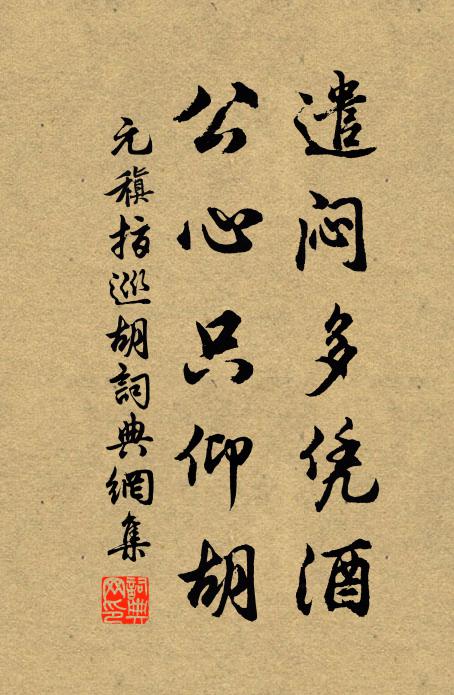 遣闷多凭酒
公心只仰胡
元稹指巡胡詞典網集
詞典网印